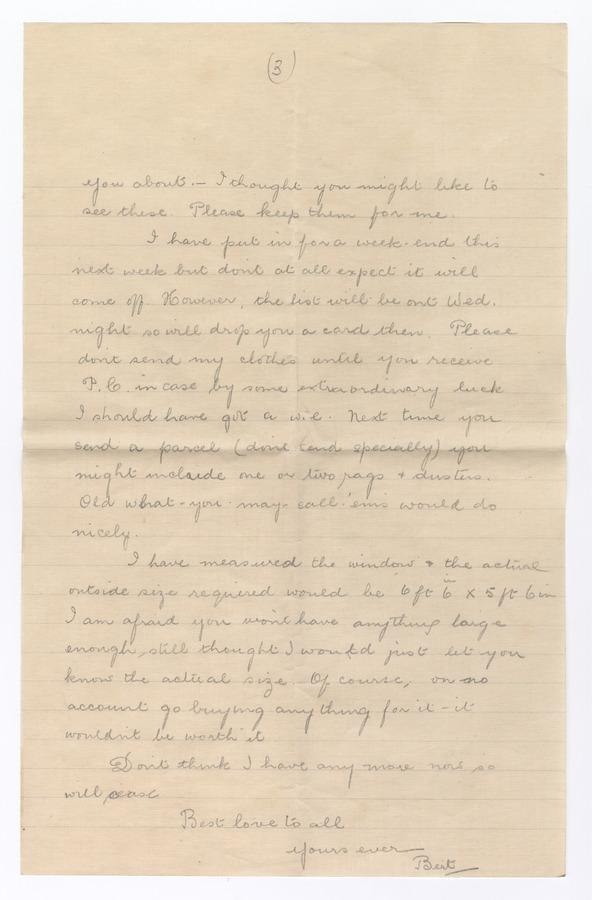 (3)
you about. — I thought you might like to
see these. Please keep them for me.
I have put in for a week-end this
next week but dont at all expect it will
come off. However, the list will be out Wed.
night so will drop you a card then. Please
dont send my clothes until you receive
P.C. in case by some extraordinary luck
I should have got a w.e. Next time you
send a parcel (dont send specially) you
might include one or two rags & dusters.
Old what-you-may-call-'ems would do
nicely.
I have measured the window & the actual
outside size required would be 6 ft 6 in x 5 ft 6 in
I am afraid you wont have anything large
enough, still thought I would just let you
know the actual size. Of course, on no
account go buying anything for it - it
wouldnt be worth it
Dont think I have any more now so
will cease
Best love to all
yours ever
Bert